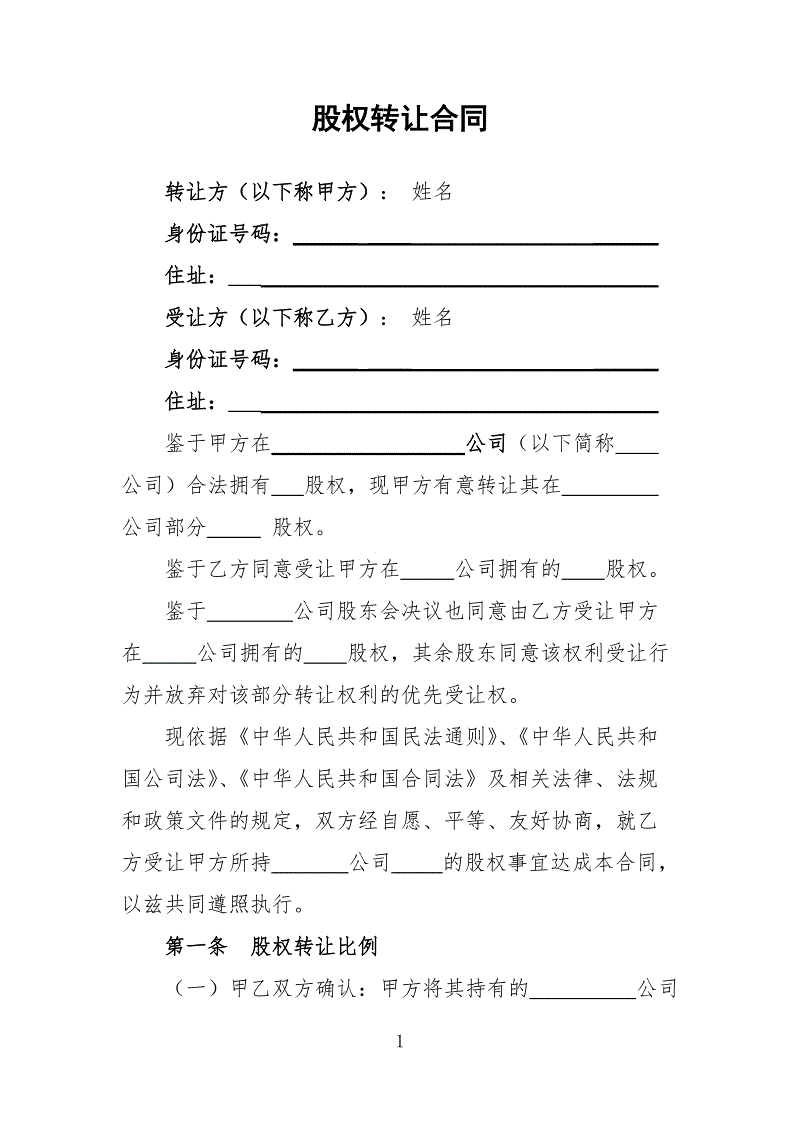 股权转让合同
转让方（以下称甲方）： 姓名
身份证号码：
住址：
受让方（以下称乙方）： 姓名
身份证号码：
住址：
鉴于甲方在__________________公司（以下简称____
公司）合法拥有___股权，现甲方有意转让其在_________
公司部分_____ 股权。
鉴于乙方同意受让甲方在_____公司拥有的____股权。
鉴于________公司股东会决议也同意由乙方受让甲方
在_____公司拥有的____股权，其余股东同意该权利受让行
为并放弃对该部分转让权利的优先受让权。
现依据《中华人民共和国民法通则》、《中华人民共和
国公司法》、《中华人民共和国合同法》及相关法律、法规
和政策文件的规定，双方经自愿、平等、友好协商，就乙
方受让甲方所持_______公司_____的股权事宜达成本合同，
以兹共同遵照执行。
第一条 股权转让比例
（一）甲乙双方确认：甲方将其持有的__________公司
1